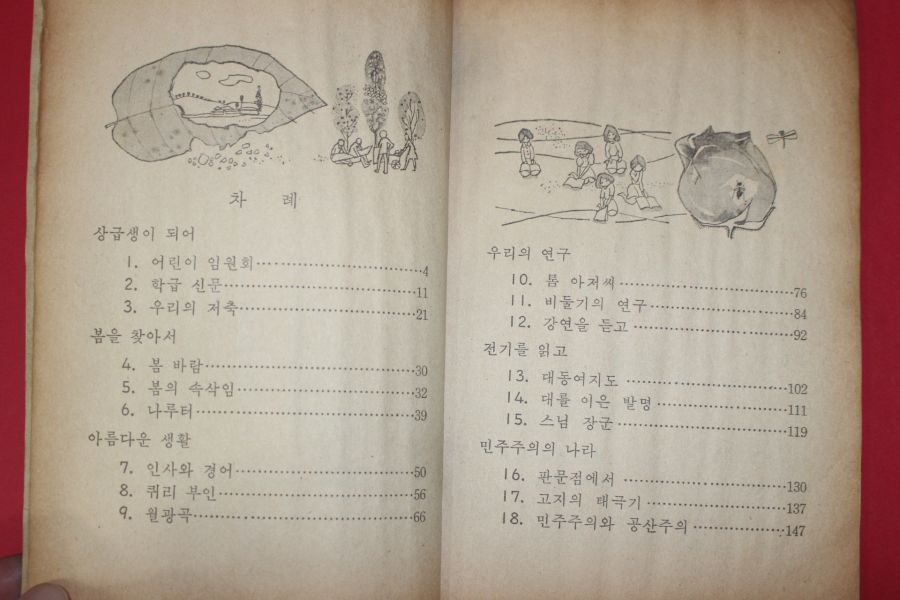 차 례
상급생이 되어
1. 어린이 임원회 4
2. 학급 신문 11
3. 우리의 저축 21
봄을 찾아서
4. 봄 바람 30
5. 봄의 속삭임 32
6. 나루터 39
아름다운 생활
7. 인사와 경어 50
8. 퀴리 부인 56
9. 월광곡 66
우리의 연구
10. 톰 아저씨 76
11. 비둘기의 연구 84
12. 강연을 듣고 92
전기를 읽고
13. 대동여지도 102
14. 대를 이은 발명 111
15. 스님 장군 119
민주주의의 나라
16. 판문점에서 130
17. 고지의 태극기 137
18. 민주주의와 공산주의 147